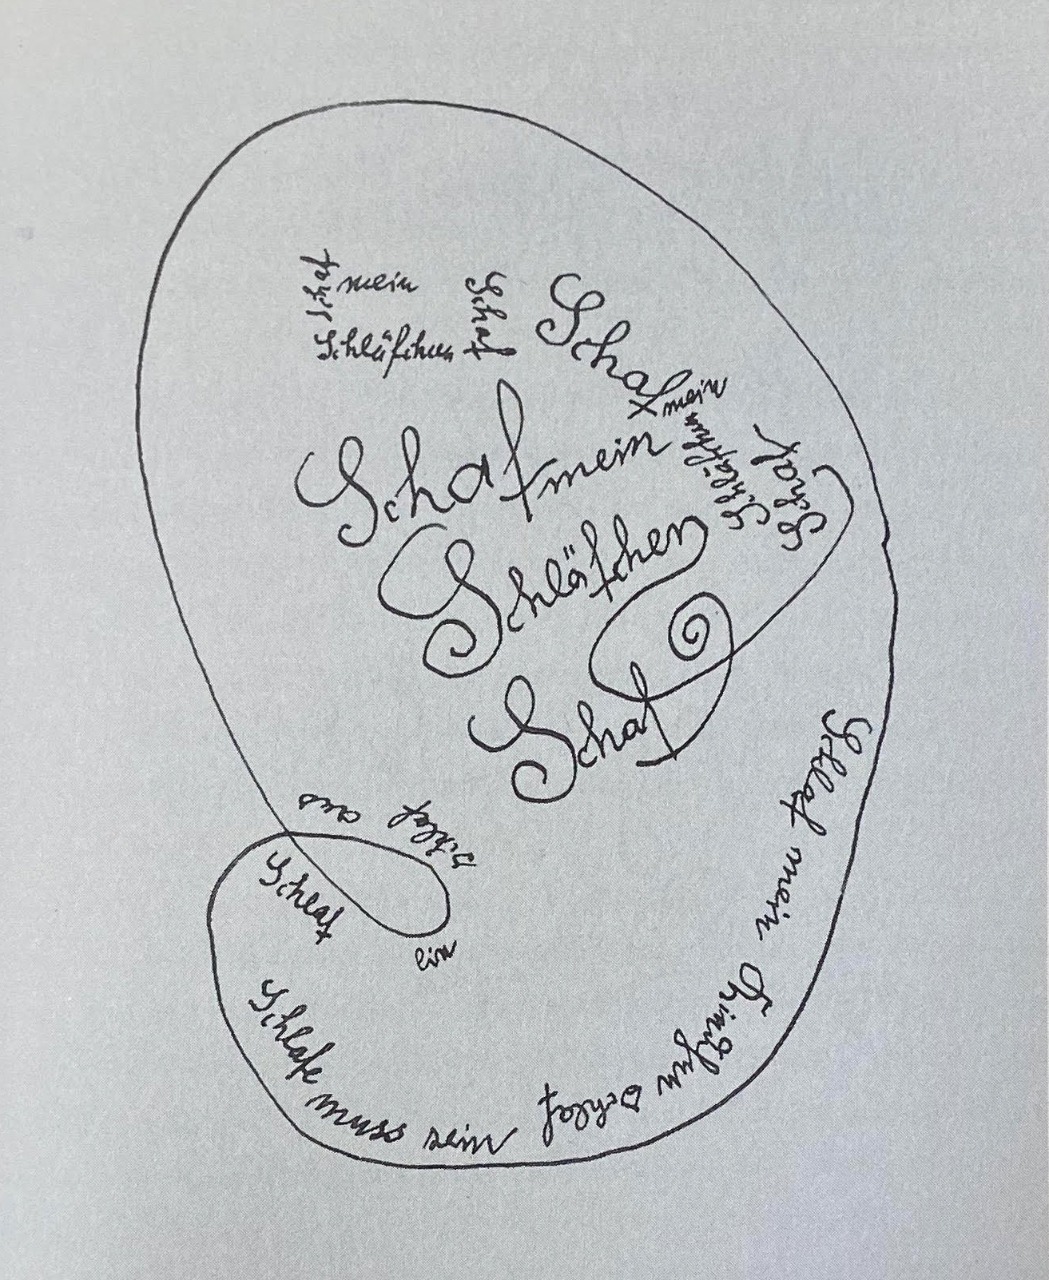 Schaf
mein
Schläfchen
Schaf
Schaf
mein
Schläfchen
Schaf
Schaf mein
Schläfchen
Schaf
Schlaf mein
Schlaf
Schlafe muss sein
Schlaf
ein
Schlaf
aus